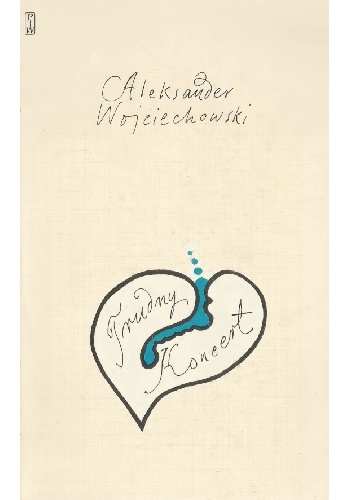 PIW
Aleksander
Wojciechowski
Trudny
Koncert